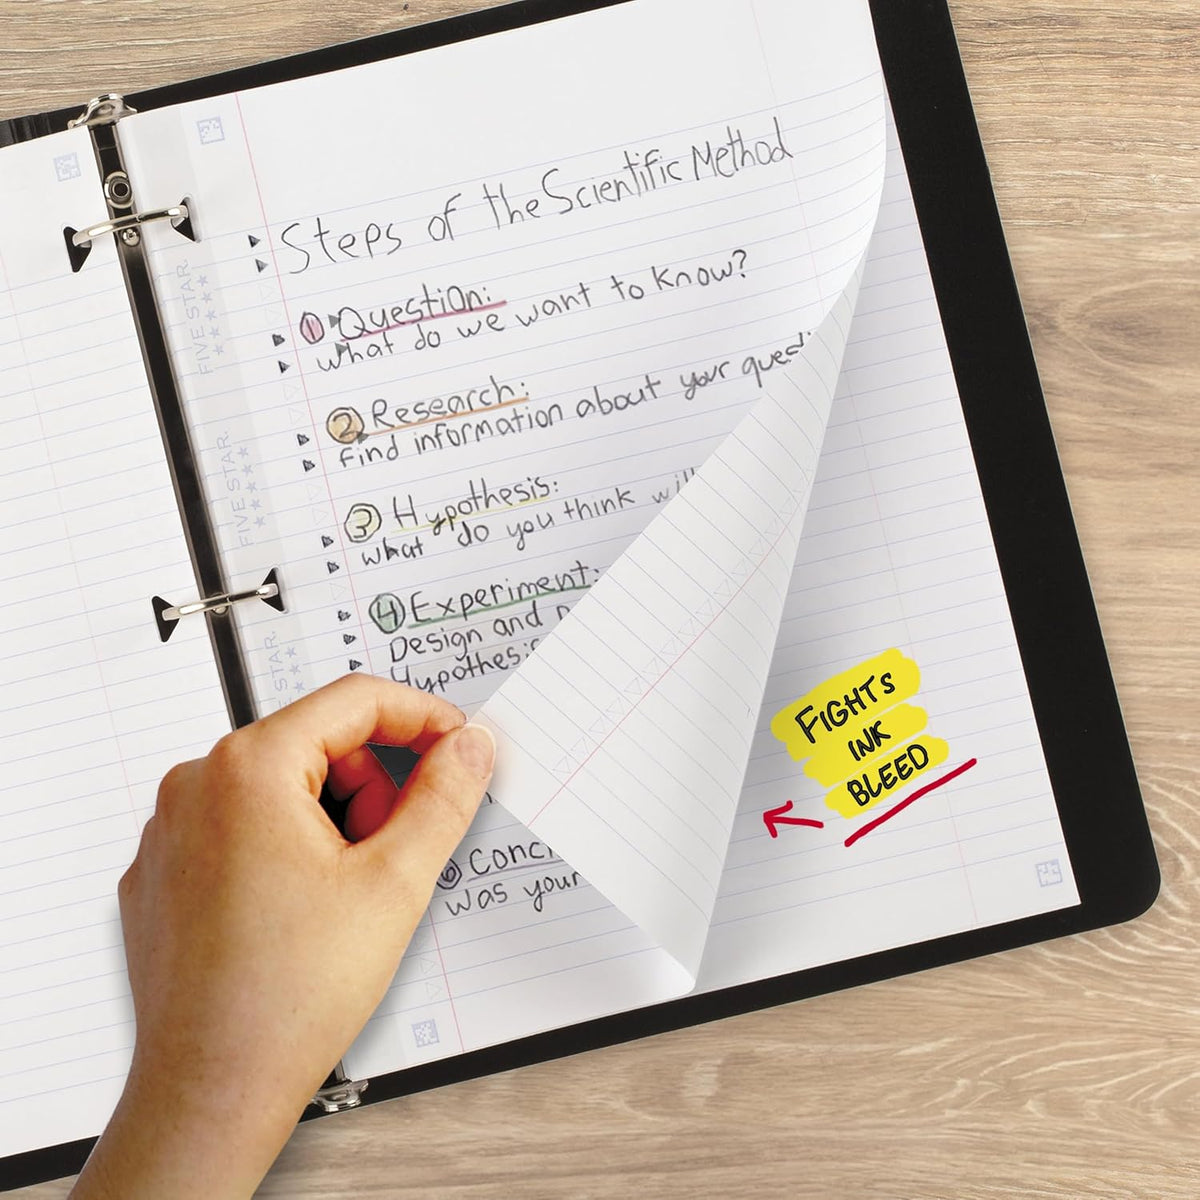 Steps of the Scientific Method
1 Question:
what do we want to know?
2 Research:
Find information about your
3 Hypothesis:
what do you think
4 Experiment:
Design and
6
was your
FIVE STAR.
FIVE STAR.
STAR.
FIGHTS
INK
BLEED